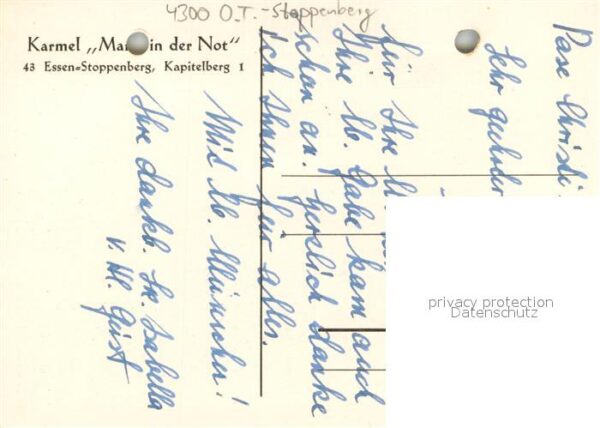 4300 O.T. - Stoppenberg
Karmel „Maria in der Not“
43 Essen-Stoppenberg, Kapitelberg 1
Pax Christi
Sehr geehrter
für Ihre
Ihre lb. Gabe kam auch
schon an. Herzlich danke
ich Ihnen für alles.
Mit lb. Wünschen!
Ihre dankb. Sr. Isabella
v. Hl. Geist
privacy protection
Datenschutz